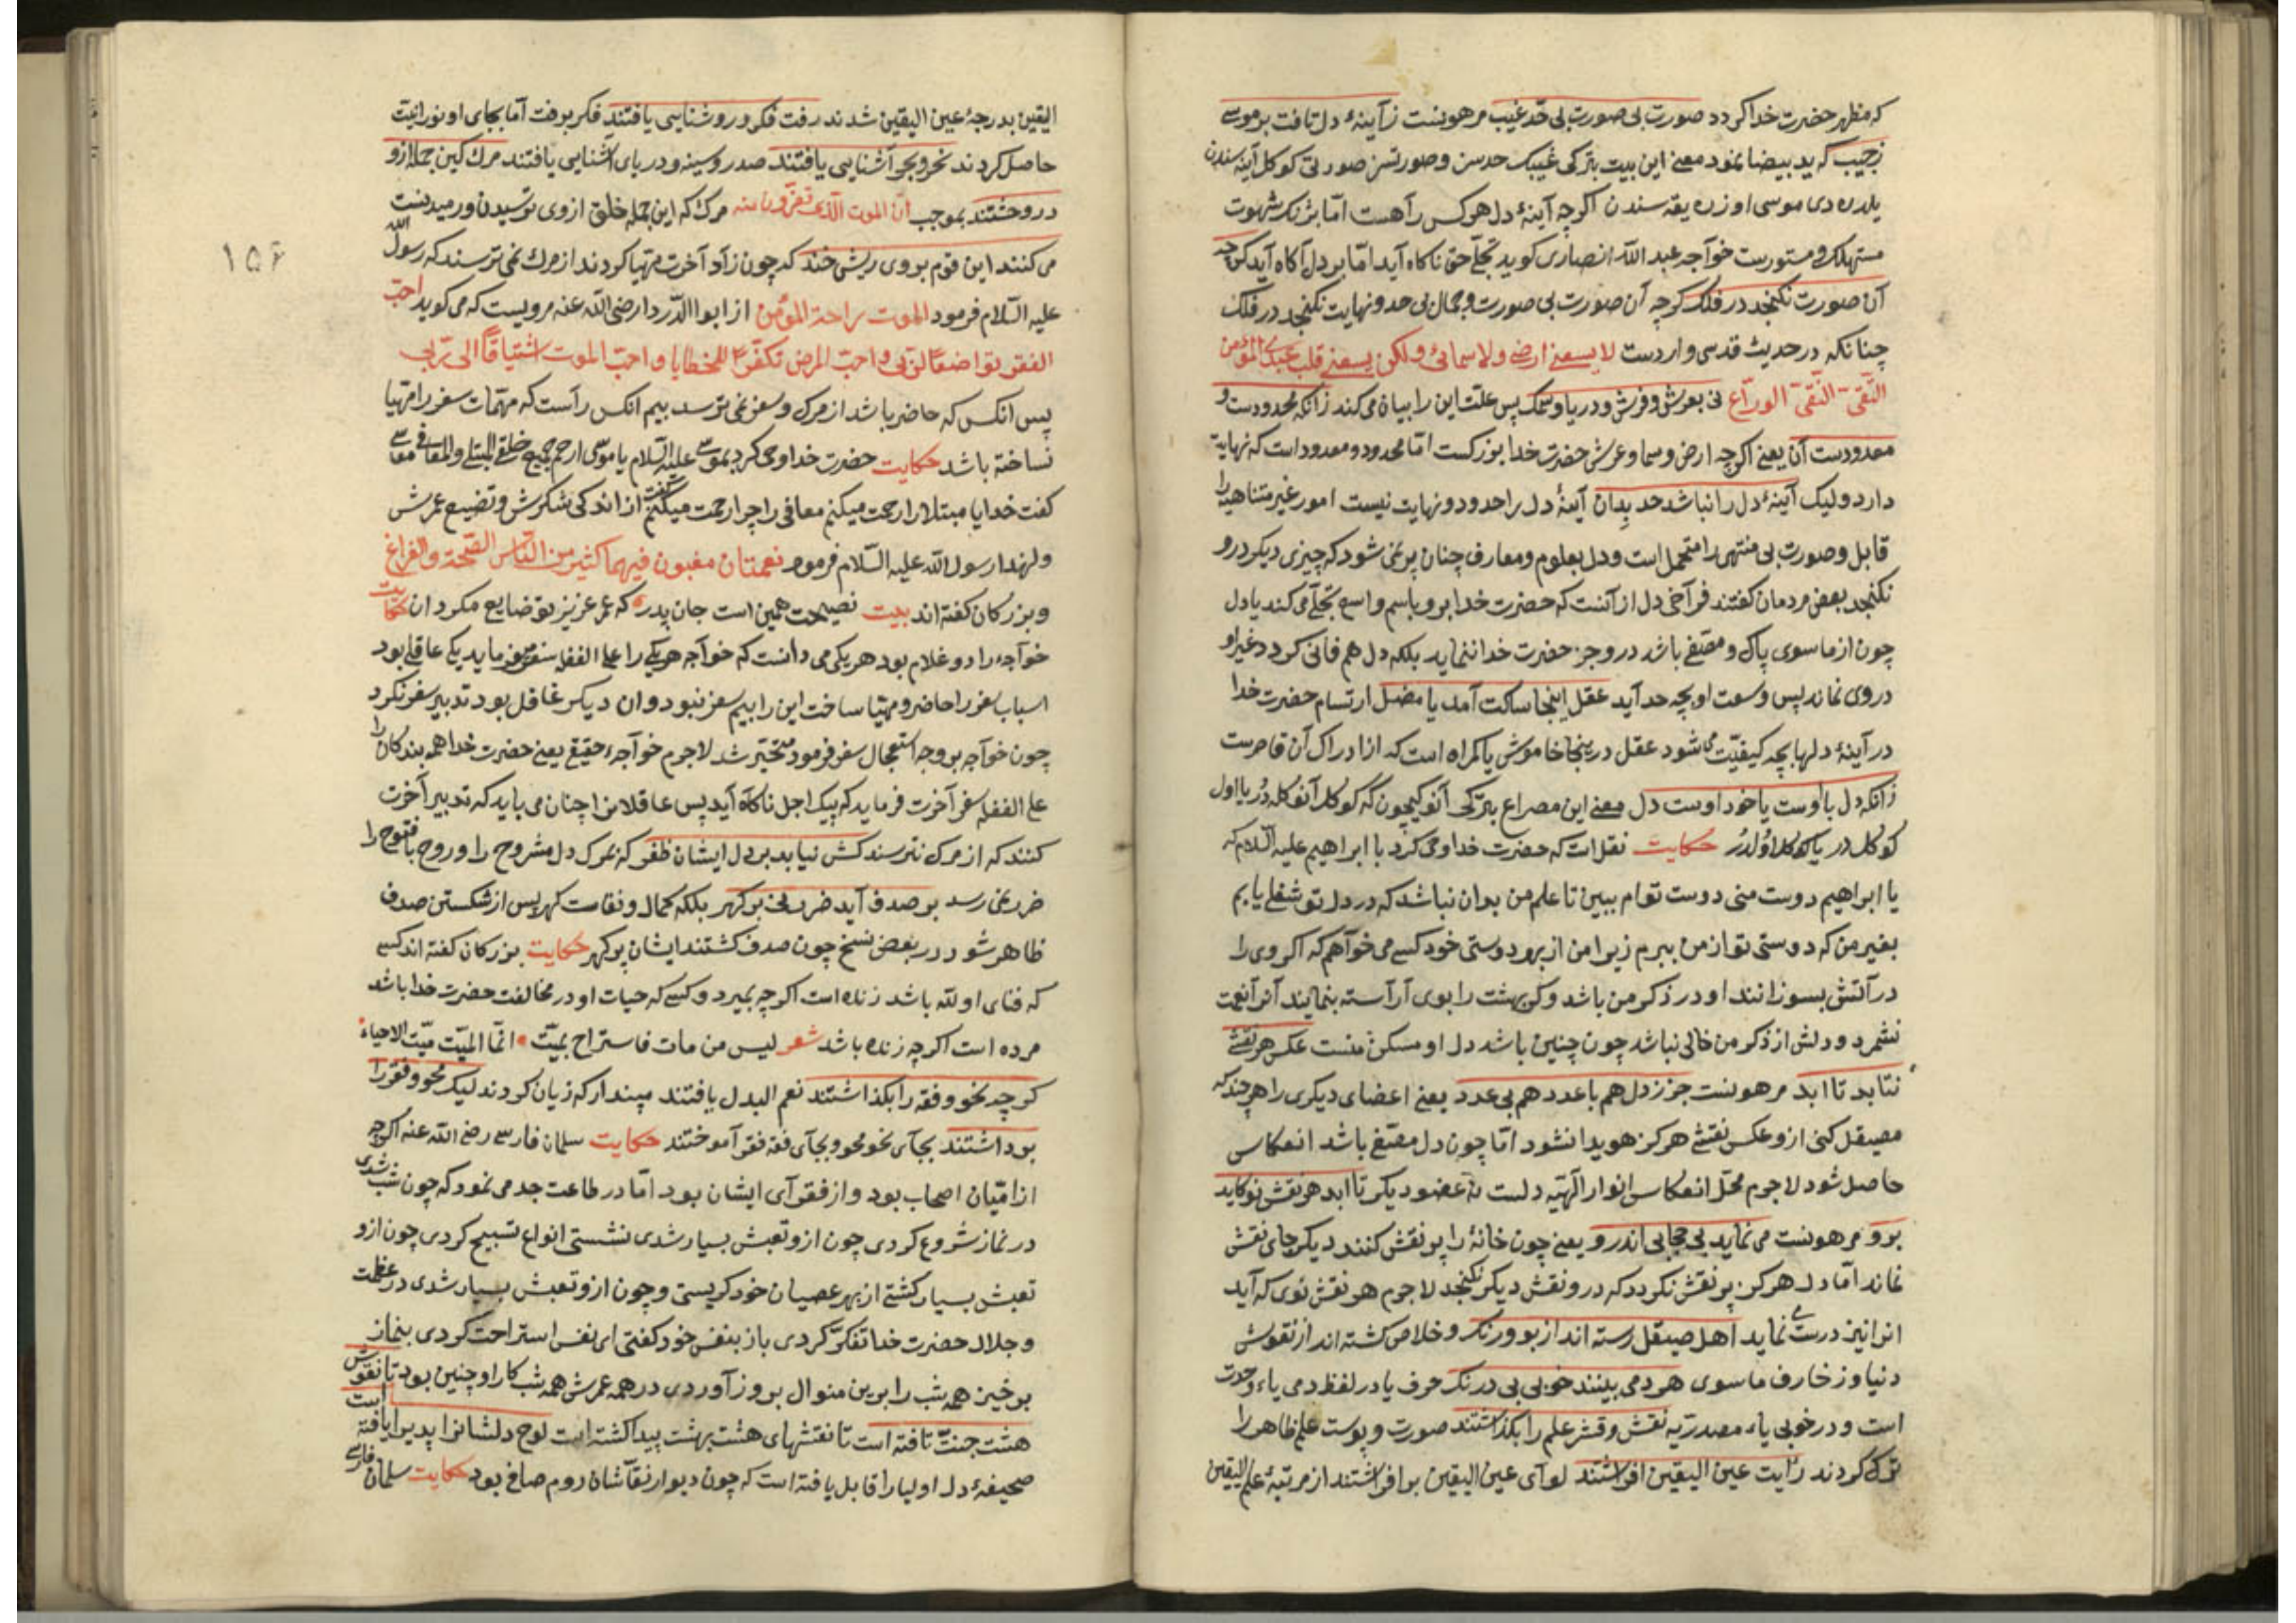 که مظهر حضرت خدا کردد صورت بی صورت بی حد غیب مر هونست ز آینهٔ دل تافت بر موسی
ز جیب که ید بیضا نمود معنی این بیت بترکی غیبک حدسن وصورتسز صورتی کوکل آینه سندن
یلدردی موسی اوزره یقه سندن اکرچه آینهٔ دل هر کس رآ هست امّا بژنک شهوت
مستهلک و مستورست خوآجه عبد الله انصاری کوید تجلّی حق ناکاه آید امّا بر دل آکاه آید کرچه
آن صورت نکنجد در فلک کرچه آن صورت بی صورت و جمال بی حد و نهایت نکنجد در فلک
چنانکه در حدیث قدسی واردست لا یسعنی ارضی ولا سمائی ولکن یسعنی قلب عبدی المؤمن
التّقی النّقی الورّاع نی بعرش و فرش و دریا و سمک پس علّت این را بیان می کند زانکه محدودست و
معدودست آن یعنی اکرچه ارض و سما و عرش حضرت خدا بزرکست امّا محدود و معدود است که نهایت
دارد ولیک آینهٔ دل را نباشد حد بدان آینهٔ دل را حدود و نهایت نیست امور غیر متناهیه را
قابل و صورت بی منتهی را متحمل است و دل بعلوم و معارف چنان پر نمی شود که چیزی دیکر درو
نکنجد بعض مردمان کفتند فرآخی دل از آنست که حضرت خدا برو باسم واسع تجلّی می کند یا دل
چون از ما سوی پاک و مصفّی باشد درو جز حضرت خدا ننماید بلکه دل هم فانی کردد غیر او
در وی نماند پس وسعت او بچه حد آید عقل اینجا ساکت آمد یا مضلّ ارتسام حضرت خدا
در آینهٔ دلها بچه کیفیّت می شود عقل درینجا خاموش یا کمراه است که از ادراک آن قاصرست
زانکه دل با اوست یا خود اوست دل معنی این مصراع بترکی آنوکیچون که کوکل آنوکله در یا اول
کوکلدر یا کوکل اولدر حکایت نقل است که حضرت خدا وحی کرد با ابراهیم علیه السّلام که
یا ابراهیم دوست منی دوست توام ببین تا علم من بران نباشد که در دل تو شغلی یابم
بغیر من که دوستی تو از من ببرم زیرا من از بهر دوستی خود کسی می خوآهم که اکر وی را
در آتش بسوزانند او در ذکر من باشد و کر بهشت را بوی آرآسته بنمایند آنرا نعمت
نشمرد و دلش از ذکر من خالی نباشد چون چنین باشد دل او مسکن منست عکس هر نقشی
نتابد تا ابد مر هونست جز ز دل هم با عدد هم بی عدد یعنی اعضای دیکری را هر چند که
مصیقل کنی ازو عکس نقشی هرکز هویدا نشود امّا چون دل مصفّی باشد انعکاس
حاصل شود لاجرم محلّ انعکاس انوار الهیّه دلست نه عضو دیکر تا ابد هر نقش نو کاید
برو مر هونست می نماید بی حجابی اندرو یعنی چون خانهٔ را پر نقش کنند دیکر جای نقش
نماند امّا دل هرکز پر نقش نکردد که درو نقش دیکر نکنجد لاجرم هر نقش نوی که آید
انرا نیز درستی نماید اهل صیقل رسته اند از بو و رنک و خلاص کشته اند از نقوش
دنیا و زخارف ما سوی هر دمی بینند خوبی بی درنک حرف یا در لفظ دمی یاء وحدت
است و در خوبی یاء مصدریّه نقش و قشر علم را بکذاشتند صورت و پوست علم ظاهر را
ترک کردند رایت عین الیقین افراشتند لوآی عین الیقین بر افراشتند از مرتبهٔ علم الیقین
الیقین بدرجهٔ عین الیقین شدند رفت فکر و روشنایی یافتند فکر برفت امّا بجای او نورانیّت
حاصل کردند نحر و بحر آشنایی یافتند صدر و سینه و دریای آشنایی یافتند مرک کین جمله ازو
در وحشتند بموجب ان الموت الّذی تفرّون منه مرک که این جمله خلق از وی ترسیدن و رمیدنست
می کنند این قوم بر وی ریش خند که چون زاد آخرت مهیّا کردند از مرک نمی ترسند که رسول الله
علیه السّلام فرمود الموت راحة المؤمن از ابو الدّردا رضی الله عنه مرویست که می کوید احبّ
الفقر تواضعًا لربّی و احبّ المرض تکفیرًا للخطایا و احبّ الموت اشتیاقًا الی ربّی
پس انکس که حاضر باشد از مرک و سفر نمی ترسد بیم انکس رآست که مهمّات سفر را مهیّا
نساخته باشد حکایت حضرت خدا وحی کرد بموسی علیه السّلام یا موسی ارحم جمیع خلقی المبتلی والمعافی موسی
کفت خدایا مبتلا را رحمت میکنم معافی را چرا رحمت میکنم کفت از اندکی شکرش و تضییع عمرش
ولهذا رسول الله علیه السّلام فرمود نعمتان مغبون فیهما کثیر من النّاس الصّحة والفراغ
و بزرکان کفته اند بیت نصیحت همین است جان پدر که عمر عزیز تو ضایع مکردان حکایت
خوآجه را دو غلام بود هر یکی می دانست که خوآجه هر یکی را علی الغفله سفر می فرماید یکی عاقل بود
اسباب سفر را حاضر و مهیّا ساخت این را بیم سفر نبود و ان دیکر غافل بود تدبیر سفر نکرد
چون خوآجه بر وجه استعجال سفر فرمود متحیّر شد لاجرم خوآجهٔ حقیقی یعنی حضرت خدا همه بندکان را
علی الغفله سفر آخرت فرماید که پیک اجل ناکاه آید پس عاقلانرا چنان می باید که تدبیر آخرت
کنند که از مرک نترسند کس نیابد بر دل ایشان ظفر که بمرک دل مشروح را و روح با فتوح را
ضرر نمی رسد بر صدف آید ضرر نی بر کهر بلکه کمال و نفاست کهر پس از شکستن صدف
ظاهر شود در بعض نسخ چون صدف کشتند ایشان پر کهر حکایت بزرکان کفته اند کسی
که فنای او لله باشد زنده است اکرچه بمیرد و کسی که حیات او در مخالفت حضرت خدا باشد
مرده است اکرچه زنده باشد شعر لیس من مات فاستراح بمیّت انّما المیّت میّت الاحیاء
کرچه نحو و فقه را بکذاشتند نعم البدل یافتند مپندار که زیان کردند لیک محو و فقر را
برداشتند بجآی نحو محو و بجآی فقه فقر آموختند حکایت سلمان فارسی رضی الله عنه اکرچه
از امّیان اصحاب بود و از فقرآی ایشان بود امّا در طاعت جد می نمود که چون شب شدی
در نماز شروع کردی چون ازو تعبش بسیار شدی نشستی انواع تسبیح کردی چون ازو
تعبش بسیار کشتی از بهر عصیان خود کریستی و چون ازو تعبش بسیار شدی در عظمت
و جلال حضرت خدا تفکّر کردی باز بنفس خود کفتی ای نفس استراحت کردی بنماز
بر خیز همه شب را برین منوال بروز آوردی در همه عمرش همه شب کار او چنین بود تا نقوش
هشت جنّت تافته است تا نقشهای هشت بهشت پیدا کشته است لوح دلشانرا پذیرا یافته است
صحیفهٔ دل اولیا را قابل یافته است که چون دیوار نقّاشان روم صافی بود حکایت سلمان فارسی
۱۵۶